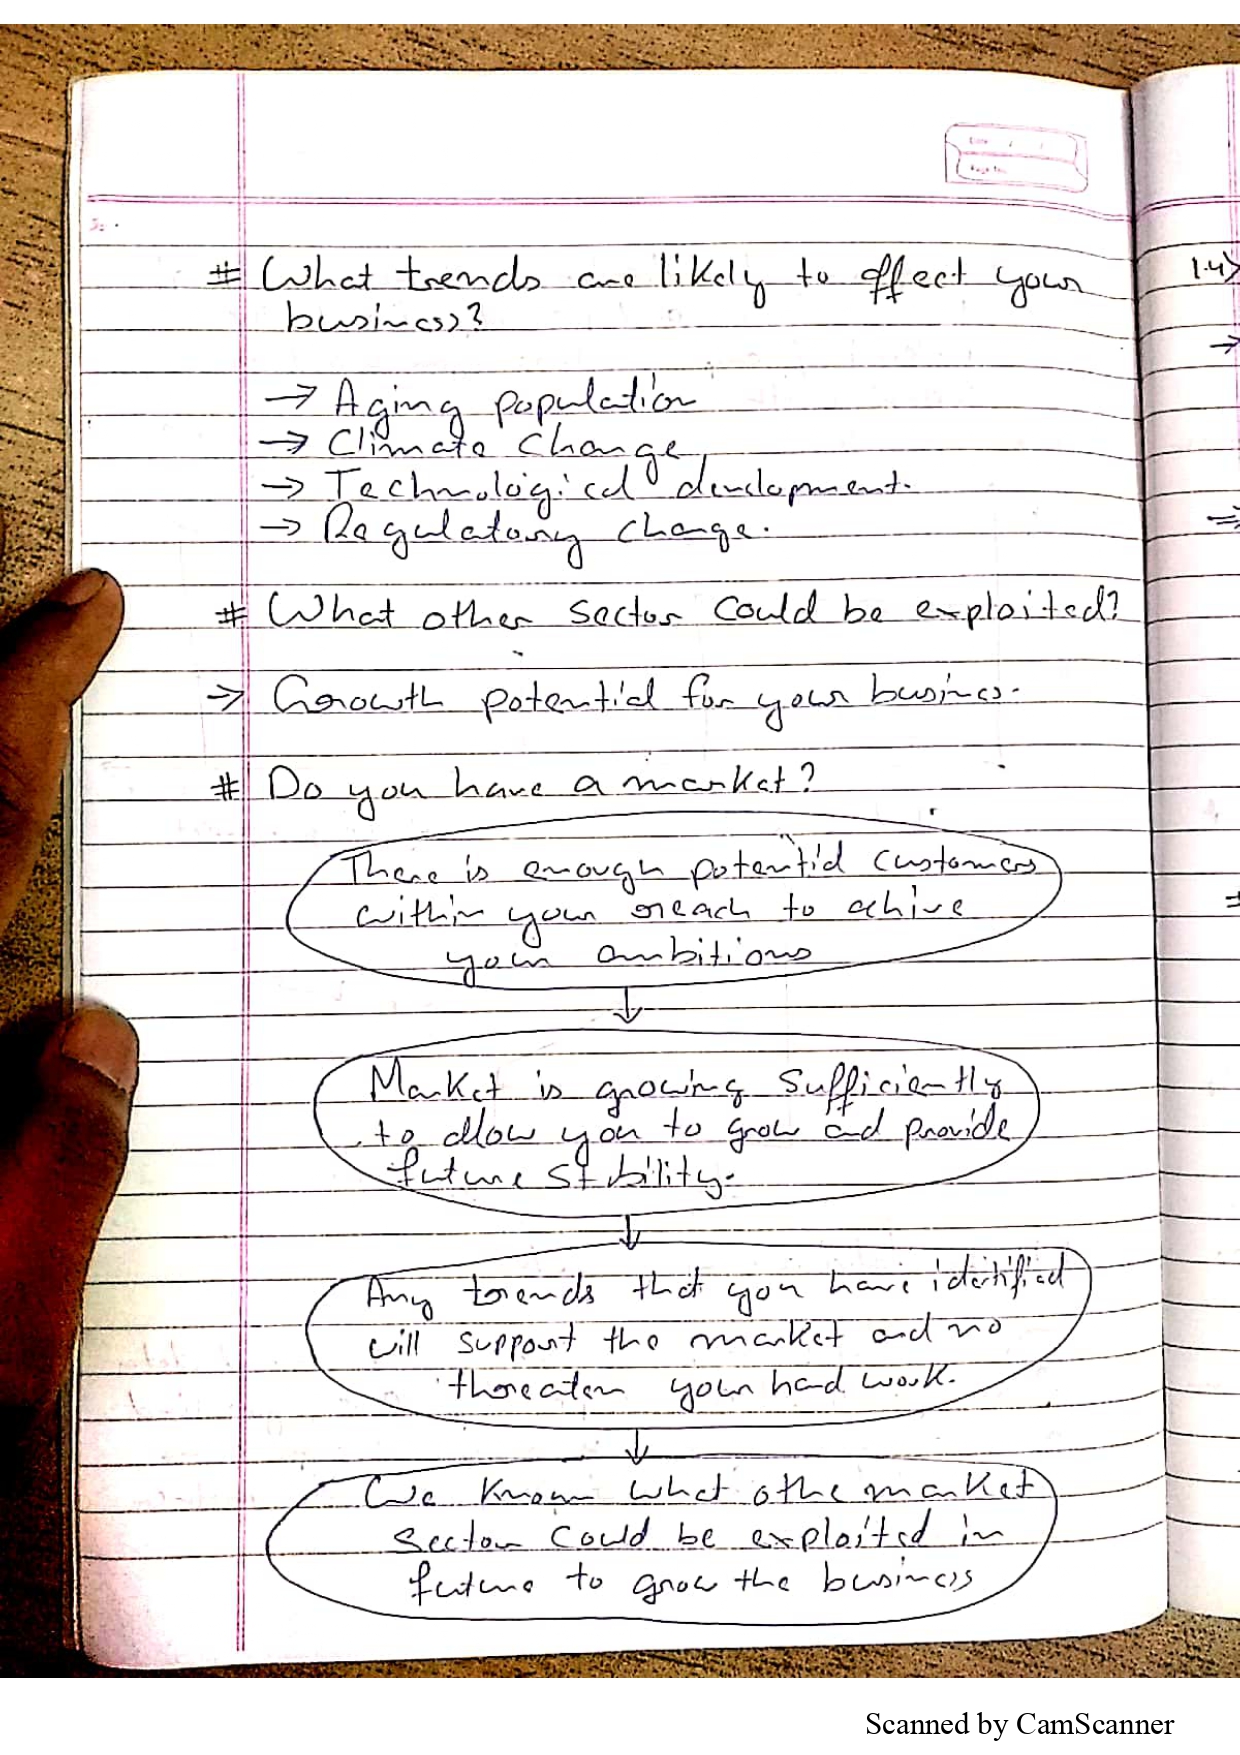 # What trends are likely to effect your
business?
→ Aging population
→ Climate change
→ Technological development.
→ Regulatory change.
# What other sector could be exploited?
→ Growth potential for your business.
# Do you have a market?
There is enough potential customers
within your reach to achive
your ambitions
↓
Market is growing sufficiently
to allow you to grow and provide
future stability.
↓
Any trends that you have identified
will support the market and no
threaten your hard work.
↓
We know what othe market
sector could be exploited in
future to grow the business
1.4>
→
Scanned by CamScanner